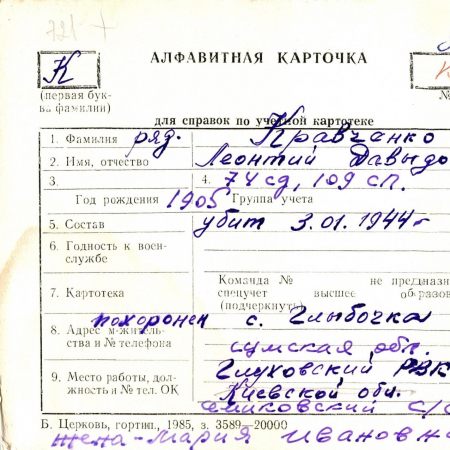 721 +
К
АЛФАВИТНАЯ КАРТОЧКА
(первая бук-
ва фамилии)
№
для справок по учетной картотеке
1. Фамилия ряд. Кравченко
2. Имя, отчество Леонтий Давыдо
3. 4. 74 сд, 109 сп.
Год рождения 1905 Группа учета
5. Состав убит 3.01.1944г
6. Годность к воен-
службе
Команда № не предназн
7. Картотека спецучет высшее образов
(подчеркнуть)
похоронен с. Глыбочка
8. Адрес м-житель-
ства и № телефона сумская обл.
Глуховский РВК
9. Место работы, дол-
жность и № тел. ОК Киевской обл.
с/с
Б. Церковь, гортип., 1985, з. 3589—20000
жена-Мария Ивановна